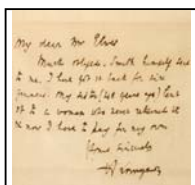 My dear Mr Elves
Much obliged. Smith himself sent
to me. I have got it back for nine
pence. My sister (40 years ago) lent
it to a woman who never returned it
& now I have to pay for my own
Yours sincerely